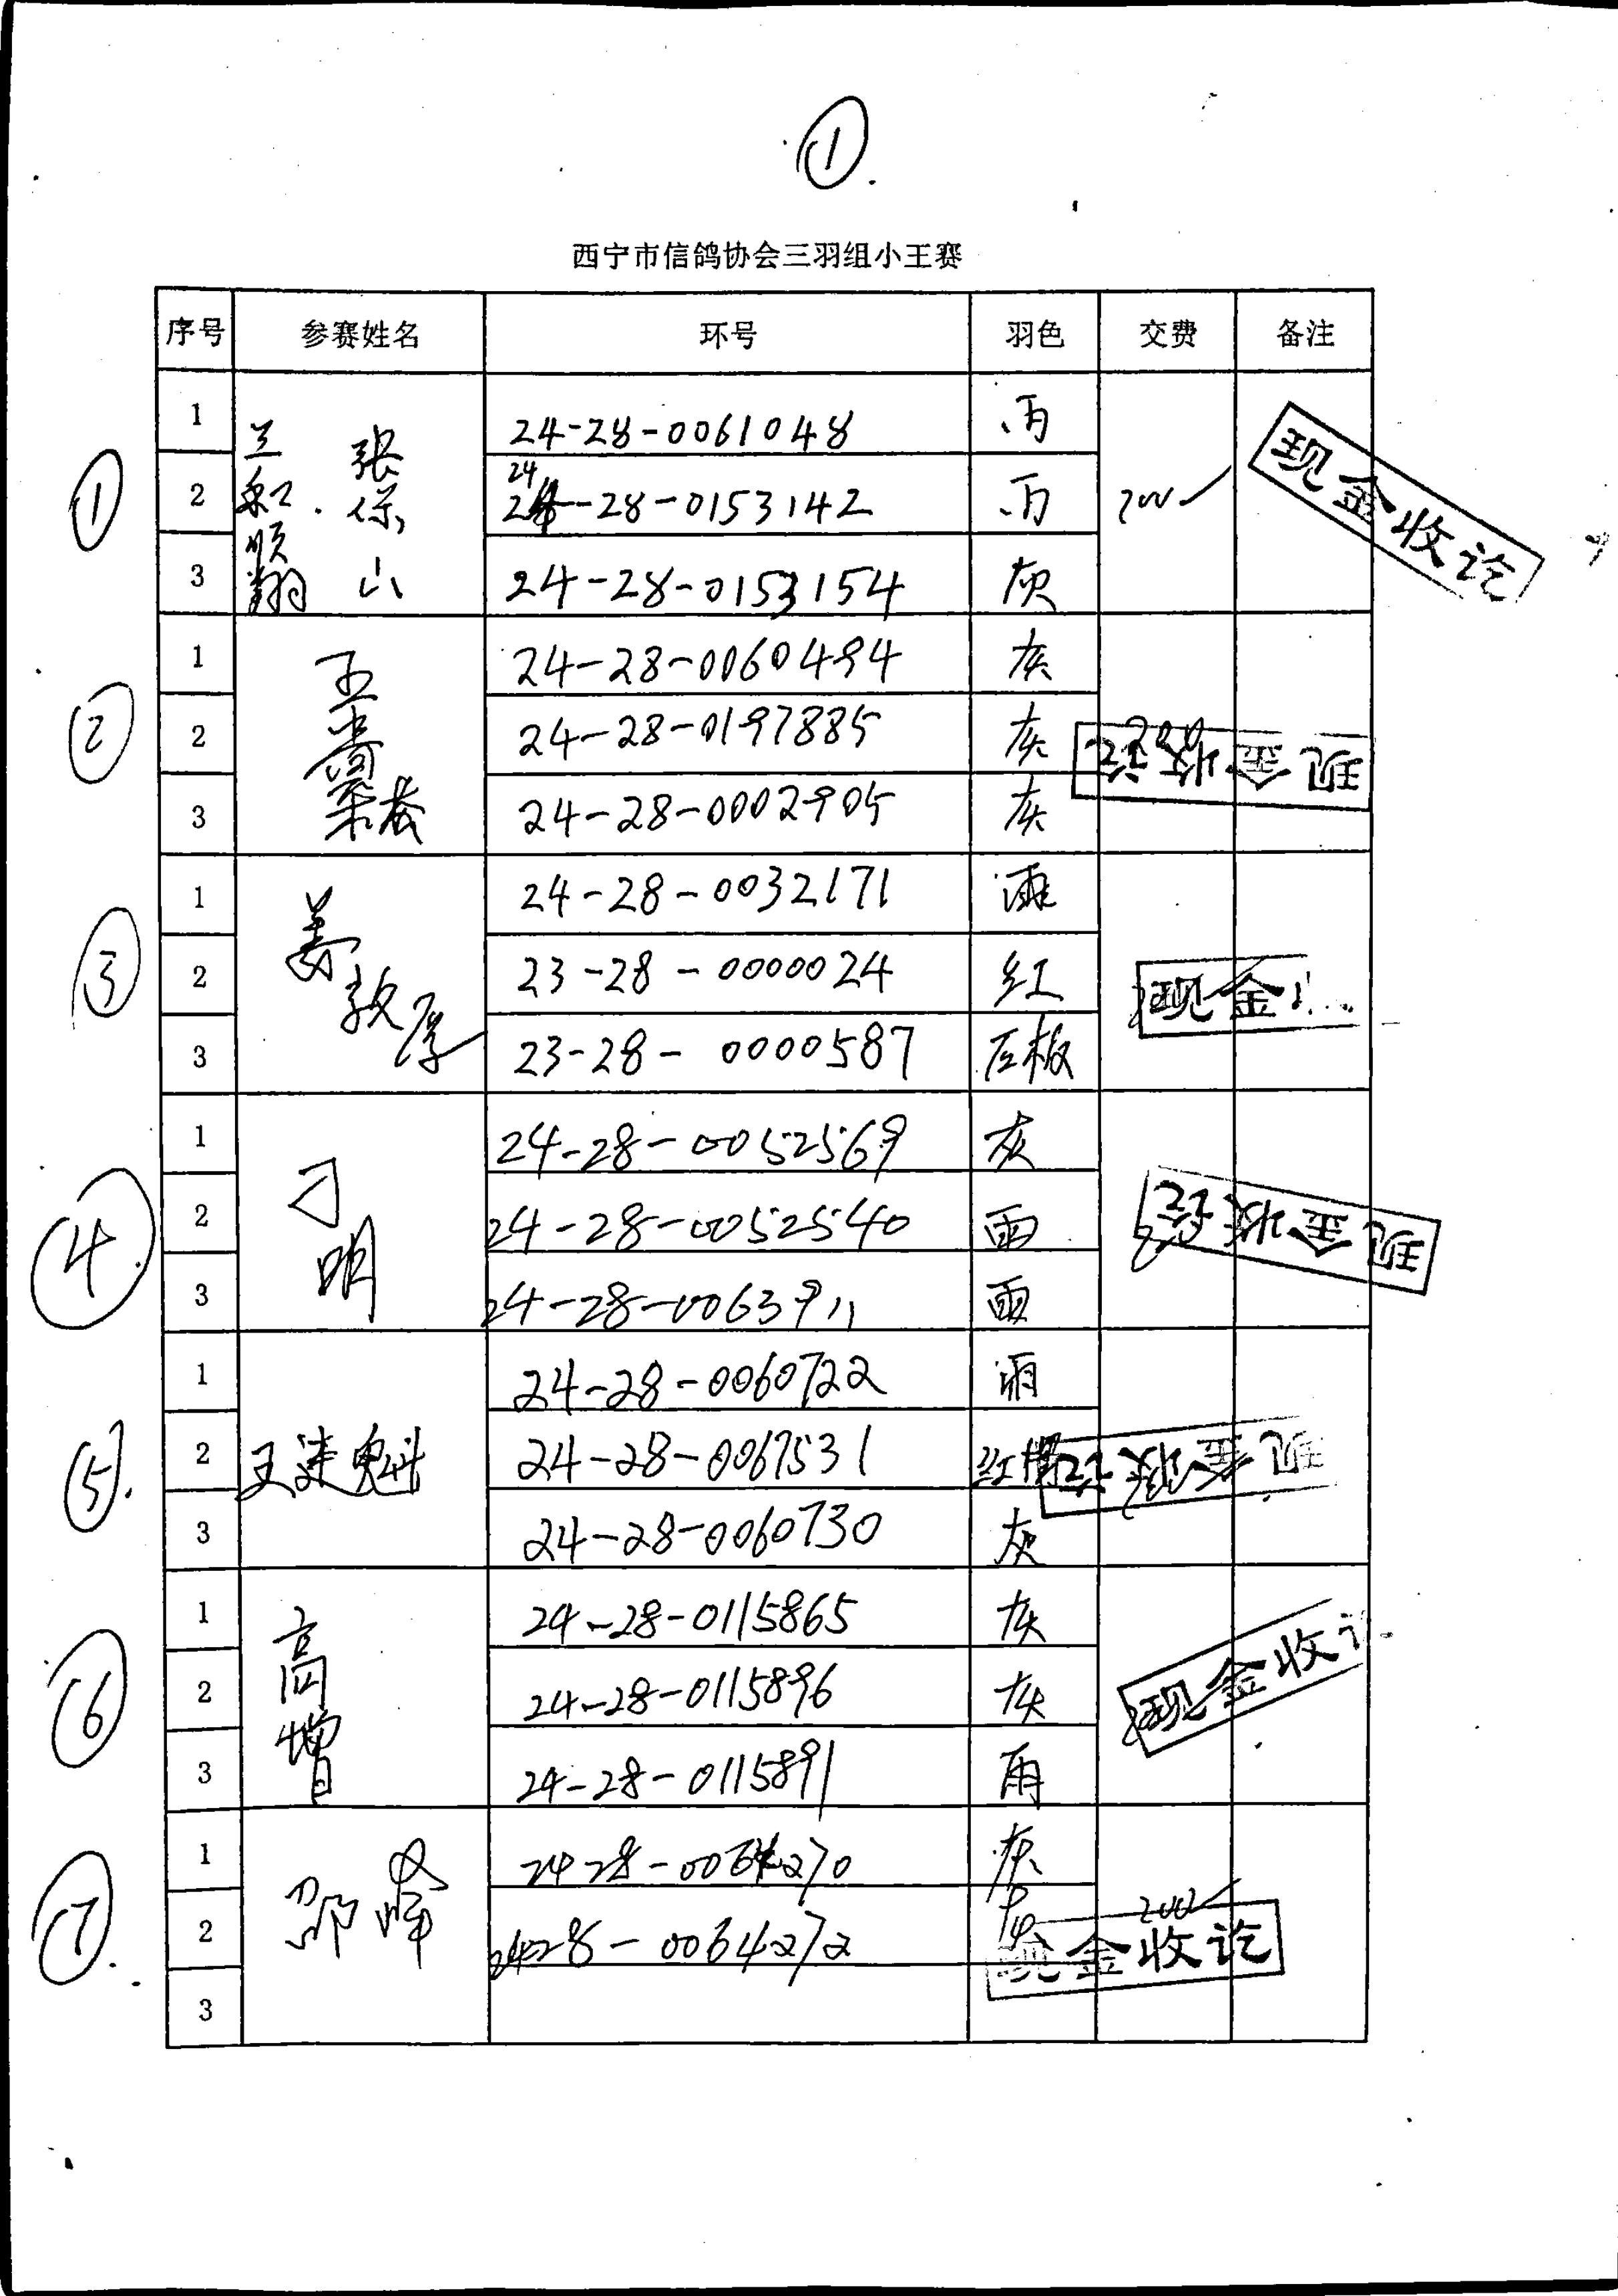 ①
西宁市信鸽协会三羽组小王赛
序号 参赛姓名 环号 羽色 交费 备注
① 兰和顺翔 张保山
1 24-28-0061048 雨
2 24-28-0153142 雨 200
3 24-28-0153154 灰
现金收讫
② 王尚荣
1 24-28-0060494 灰
2 24-28-0197885 灰 200
3 24-28-0002905 灰
现金收讫
③ 姜 厚
1 24-28-0032171 雨
2 23-28-0000024 红
3 23-28-0000587 石板
现金
④ 刁明
1 24-28-0052569 灰
2 24-28-0052540 雨
3 24-28-0063911 雨
现金收讫
⑤ 王建魁
1 24-28-0060722 雨
2 24-28-0067531 红
3 24-28-0060730 灰
现金收讫
⑥ 高增
1 24-28-0115865 灰
2 24-28-0115896 灰
3 24-28-0115891 雨
现金收讫
⑦ 邵峰
1 24-28-0064270 灰
2 24-28-0064272 200
3
现金收讫